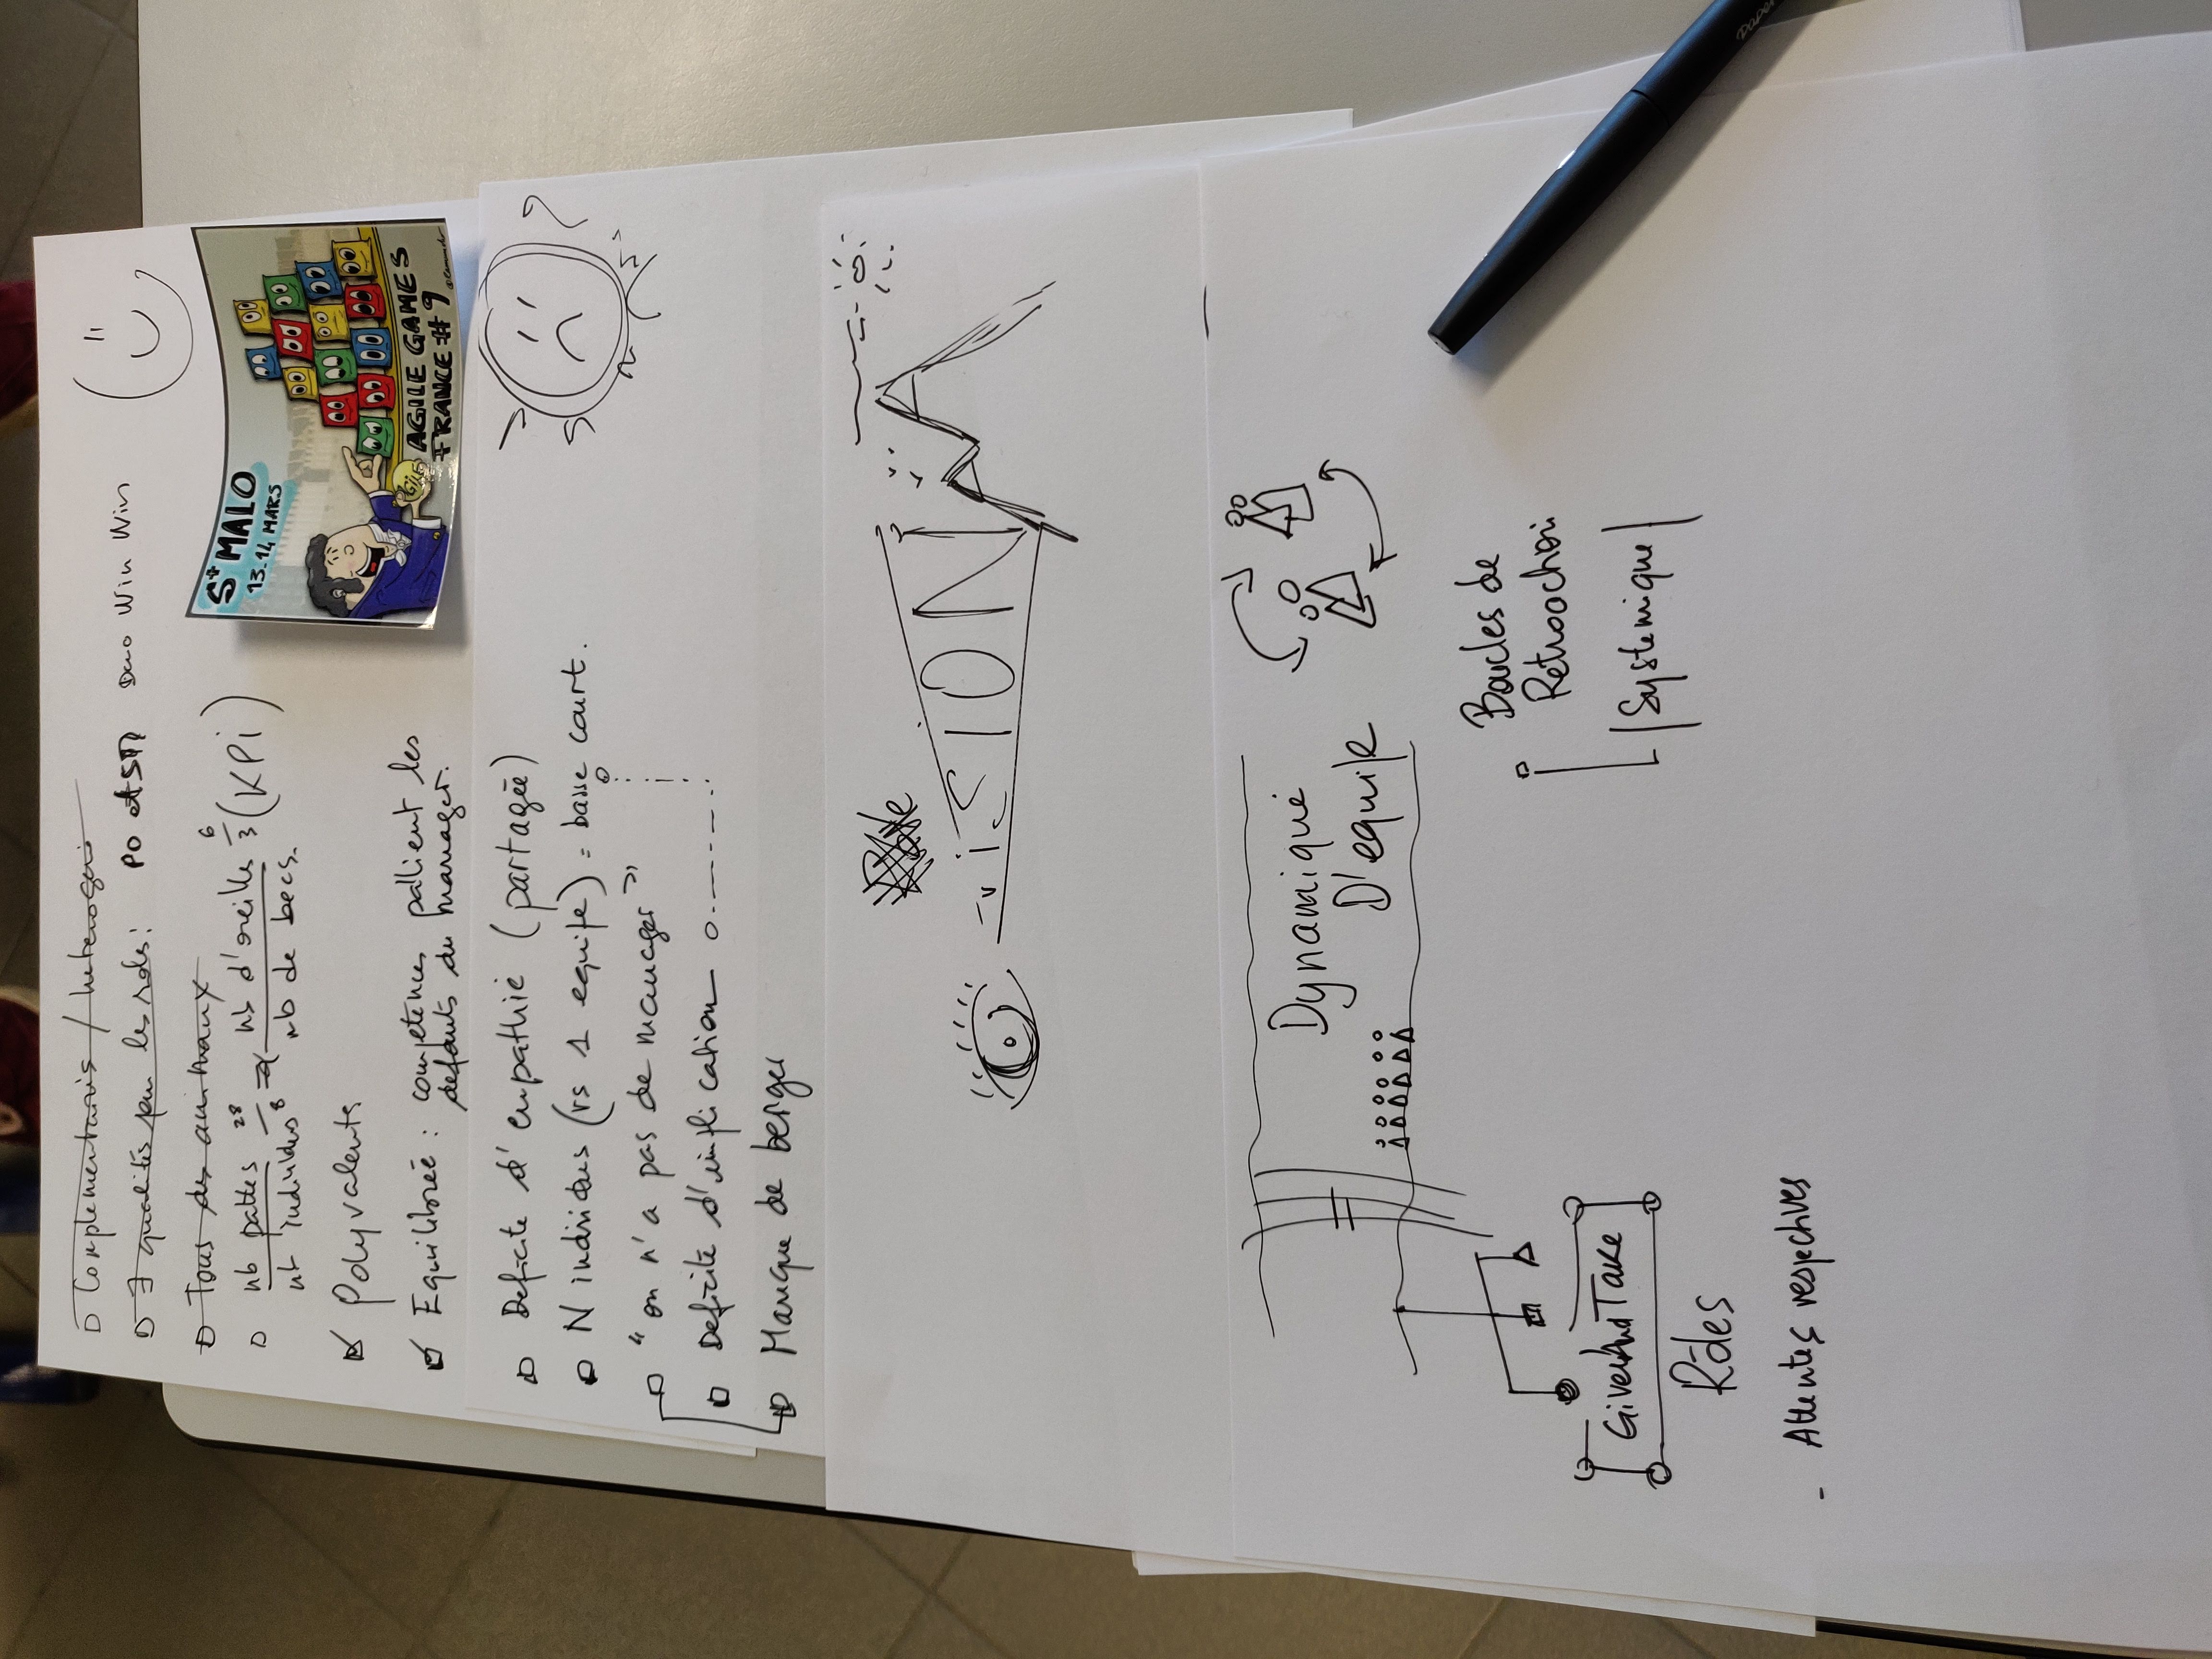 Complementaires / heterogene
7 qualités pour les roles : PO et SM Duo Win Win
Tous des animaux
nb pattes 28 nb d'oreilles 6 (KPi)
nb individus 8 nb de becs. 3
Polyvalents
Equilibrée : compétences pallient les
defauts du manager.
St MALO
13.14 MARS
AGILE
AGILE GAMES
FRANCE #9
Deficite d'empathie (partagée)
N individus (vs 1 equipe) = basse court.
"on n'a pas de manager"
Deficite d'implication
Manque de berger
ViSION
Dynamique
D'equipe
Boucles de
Retroaction
Systemique
Give And Take
Rôles
- Attentes respectives